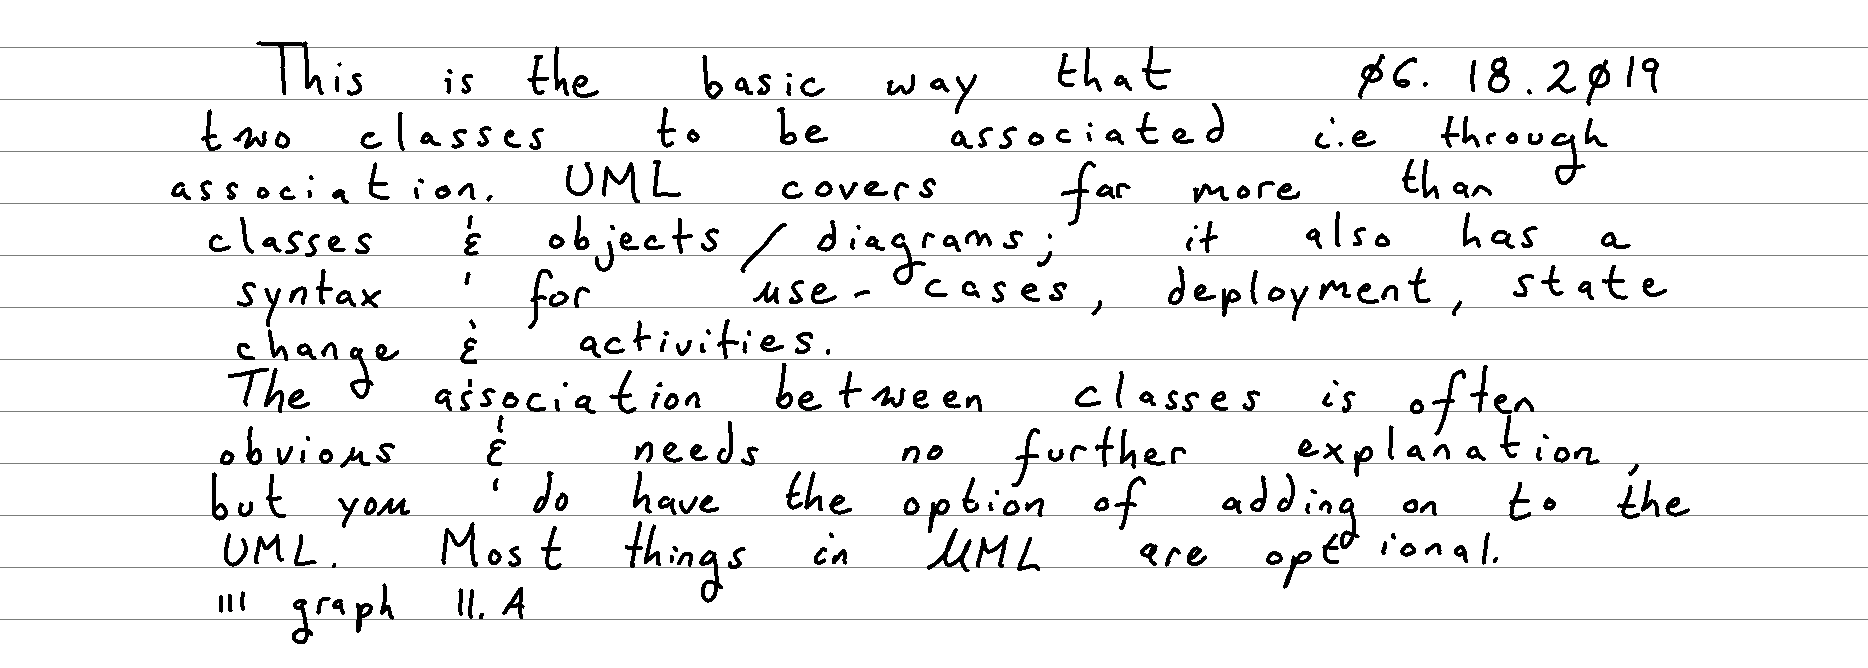 This is the basic way that ø6.18.2ø19
two classes to be associated i.e through
association. UML covers far more than
classes & objects / diagrams; it also has a
syntax for use-cases, deployment, state
change & activities.
The association between classes is often
obvious & needs no further explanation,
but you do have the option of adding on to the
UML. Most things in UML are optional.
III graph II.A